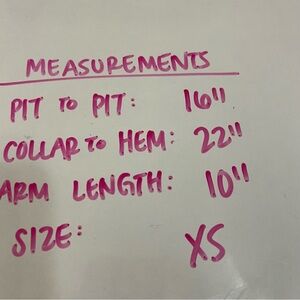 MEASUREMENTS
PIT to PIT: 16"
COLLAR to HEM: 22"
ARM LENGTH: 10"
SIZE: XS